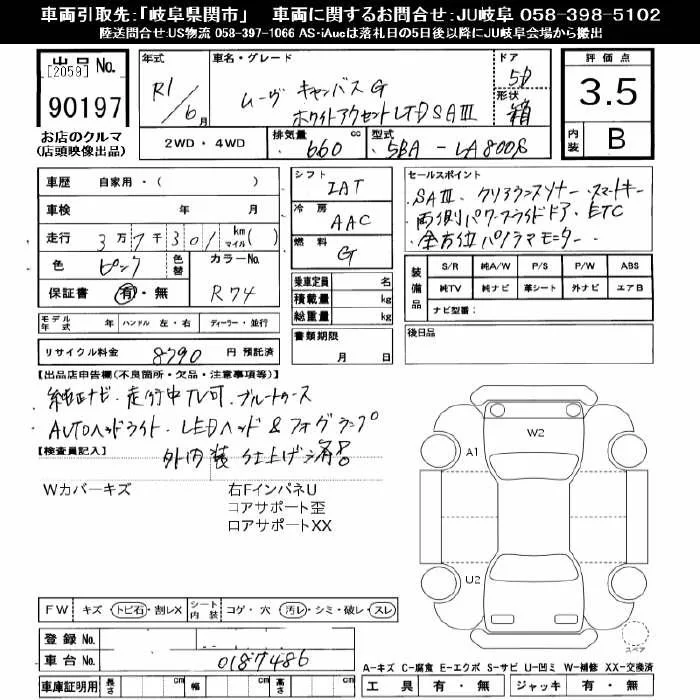 車両引取先:「岐阜県関市」 車両に関するお問合せ:JU岐阜 058-398-5102
陸送問合せ:US物流 058-397-1066 AS-iAucは落札日の5日後以降にJU岐阜会場から搬出
出品No.
[2059]
90197
お店のクルマ
(店頭映像出品)
年式 R1/6月
車名・グレード
ムーヴ キャンバス G
ホワイトアクセントLTD SAⅢ
ドア 5D
形状 箱
評価点
3.5
内装 B
2WD・4WD
排気量 660 cc
型式 5BA-LA800S
車歴 自家用・( )
車検 年 月
走行 3万7千301 km マイル( )
色 ピンク 色替 カラーNo.
保証書 有・無 R74
シフト IAT
冷房 AAC
燃料 G
セールスポイント
SAⅢ、クリアランスソナー・スマートキー
両側パワースライドドア、ETC
全方位パノラマモニター
乗車定員 名
積載量 kg
総重量 kg
装備品
S/R 純A/W P/S P/W ABS
純TV 純ナビ 革シート 外ナビ エアB
ナビ型番:
モデル年式 年 ハンドル 左・右 ディーラー・並行
書類期限
月 日
後日品
リサイクル料金 8790 円 預託済
【出品店申告欄(不良箇所・欠品・注意事項等)】
純正ナビ・走行中TV可、ブルートゥース
AUTOヘッドライト・LEDヘッド&フォグランプ
【検査員記入】
外内装仕上げ済!
Wカバーキズ
右FインパネU
コアサポート歪
ロアサポートXX
W2
A1
U2
スペア
FW キズ・トビ石・割レX シート内装 コゲ・穴 汚レ・シミ・破レ・スレ
登録No.
車台No. 0187486
車庫証明用 長さ cm 幅 cm 高さ cm
A-キズ C-腐食 E-エクボ S-サビ U-凹ミ W-補修 XX-交換済
工具 有・無 ジャッキ 有・無